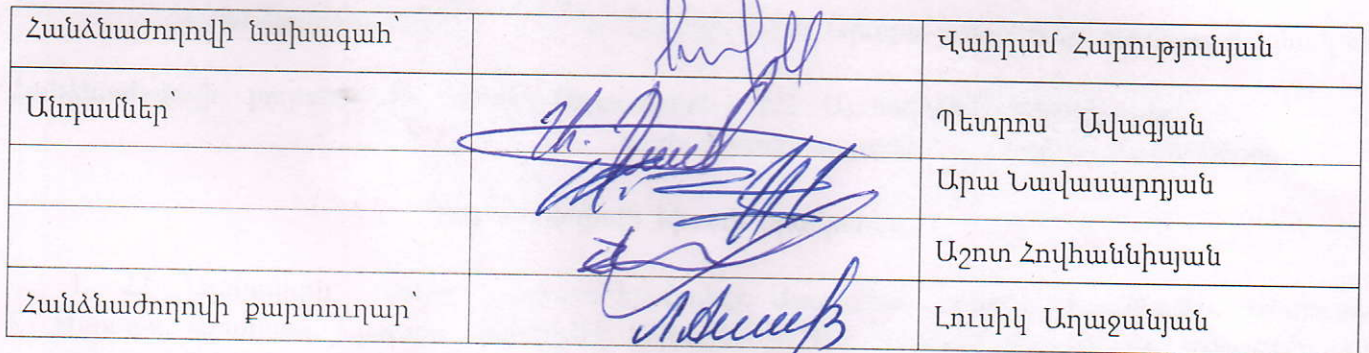 Հանձնաժողովի նախագահ՝ Վահրամ Հարությունյան
Անդամներ Պետրոս Ավագյան
Արա Նավասարդյան
Աշոտ Հովհաննիսյան
Հանձնաժողովի քարտուղար՝ Լուսիկ Աղաջանյան